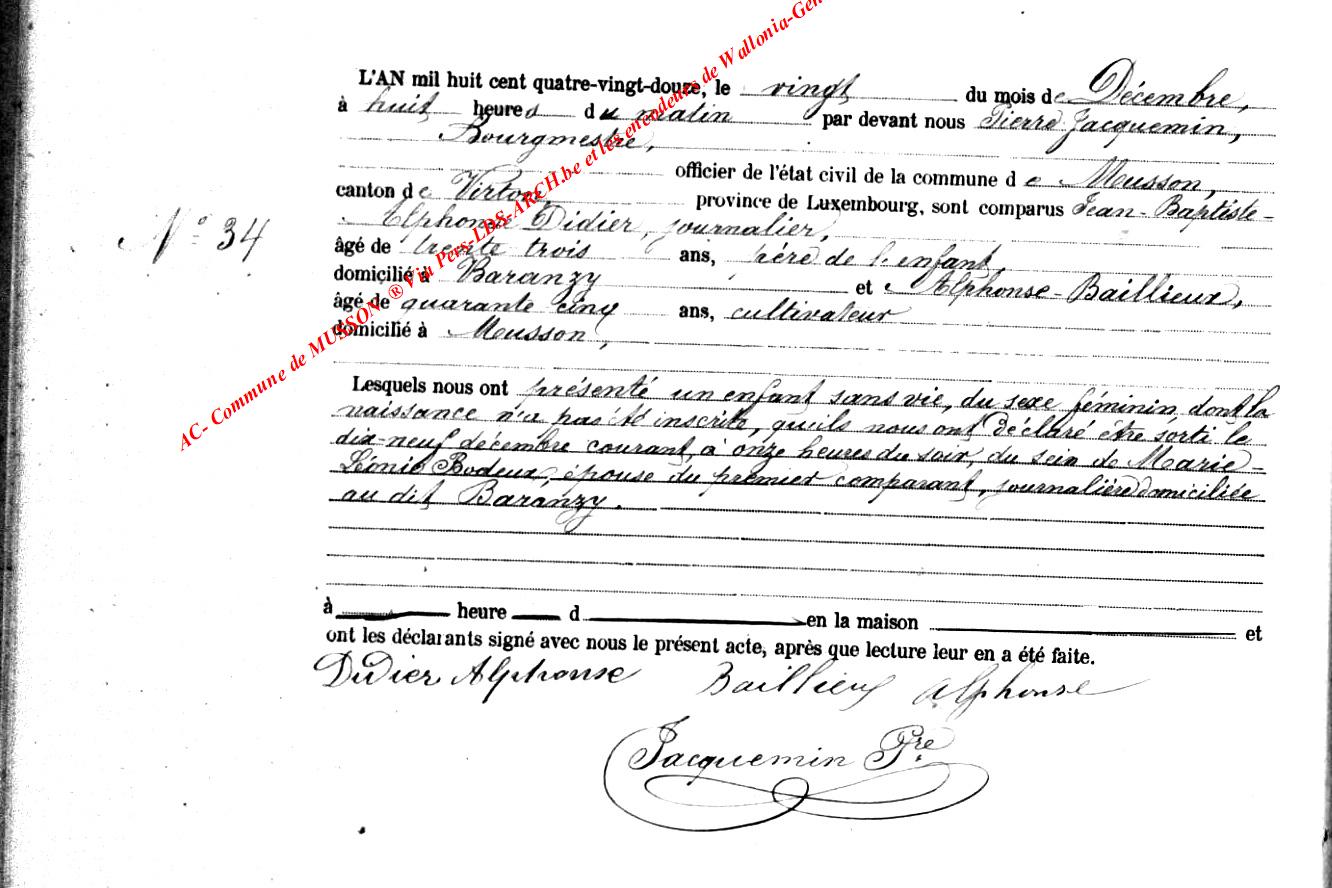 L'AN mil huit cent quatre-vingt-douze, le vingt du mois de Décembre,
à huit heures du matin par devant nous Pierre Jacquemin,
Bourgmestre,
officier de l'état civil de la commune de Musson,
canton de Virton, province de Luxembourg, sont comparus Jean-Baptiste-
Alphonse Didier, journalier,
âgé de trente trois ans, père de l'enfant,
domicilié à Baranzy et Alphonse Baillieux,
âgé de quarante cinq ans, cultivateur
domicilié à Musson,
N° 34
Lesquels nous ont présenté un enfant sans vie, du sexe féminin dont la
naissance n'a pas été inscrite, qu'ils nous ont déclaré être sorti le
dix-neuf décembre courant, à onze heures du soir, du sein de Marie-
Léonie Bodeux, épouse du premier comparant, journalière domiciliée
au dit Baranzy.
à heure d en la maison et
ont les déclarants signé avec nous le présent acte, après que lecture leur en a été faite.
Didier Alphonse Baillieux Alphonse
Jacquemin Pre
AC- Commune de MUSSON ® Via Pers-LDS-ARCH.be et les encodeurs de Wallonia-Gen